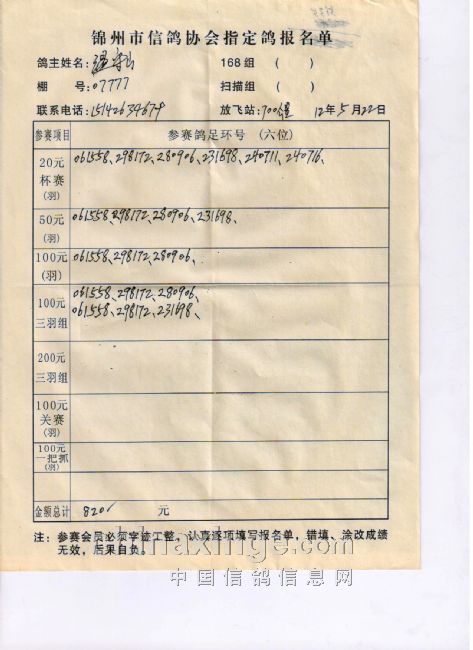 锦州市信鸽协会指定鸽报名单
鸽主姓名: 168组 ( )
棚 号: 07777 扫描组 ( )
联系电话: 15142634679 放飞站: 700公里 12年5月22日
参赛项目 参赛鸽足环号 (六位)
20元 杯赛 (羽) 061558、298172、280906、231698、240711、240716、
50元 (羽) 061558、298172、280906、231698、
100元 (羽) 061558、298172、280906、
100元 三羽组 061558、298172、280906、
061558、298172、231698、
200元 三羽组
100元 关赛 (羽)
100元 一把抓 (羽)
金额总计 820 元
注: 参赛会员必须字迹工整,认真逐项填写报名单,错填、涂改成绩
无效,后果自负。
chinaxinge.com
中国信鸽信息网